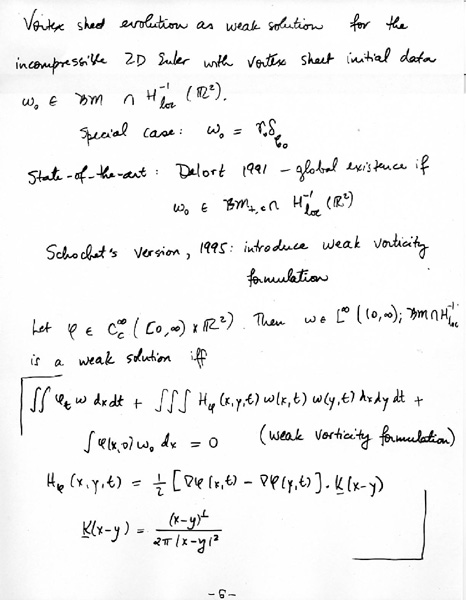 Vortex sheet evolution as weak solution for the
incompressible 2D Euler with vortex sheet initial data
ω₀ ∈ BM ∩ H⁻¹_loc (ℝ²).
Special case: ω₀ = γ₀δ_C₀
State-of-the-art: Delort 1991 – global existence if
ω₀ ∈ BM₊,c ∩ H⁻¹_loc (ℝ²)
Schochet's version, 1995: introduce weak vorticity
formulation
Let φ ∈ C_c^∞ ([0,∞) × ℝ²). Then ω ∈ L^∞ ((0,∞); BM ∩ H⁻¹_loc
is a weak solution iff
∬ φ_t ω dxdt + ∭ H_φ (x,y,t) ω(x,t) ω(y,t) dxdy dt +
∫ φ(x,0) ω₀ dx = 0 (weak vorticity formulation)
H_φ (x,y,t) = 1/2 [∇φ(x,t) – ∇φ(y,t)] · K(x-y)
K(x-y) = (x-y)^⊥ / 2π|x-y|²
-6-